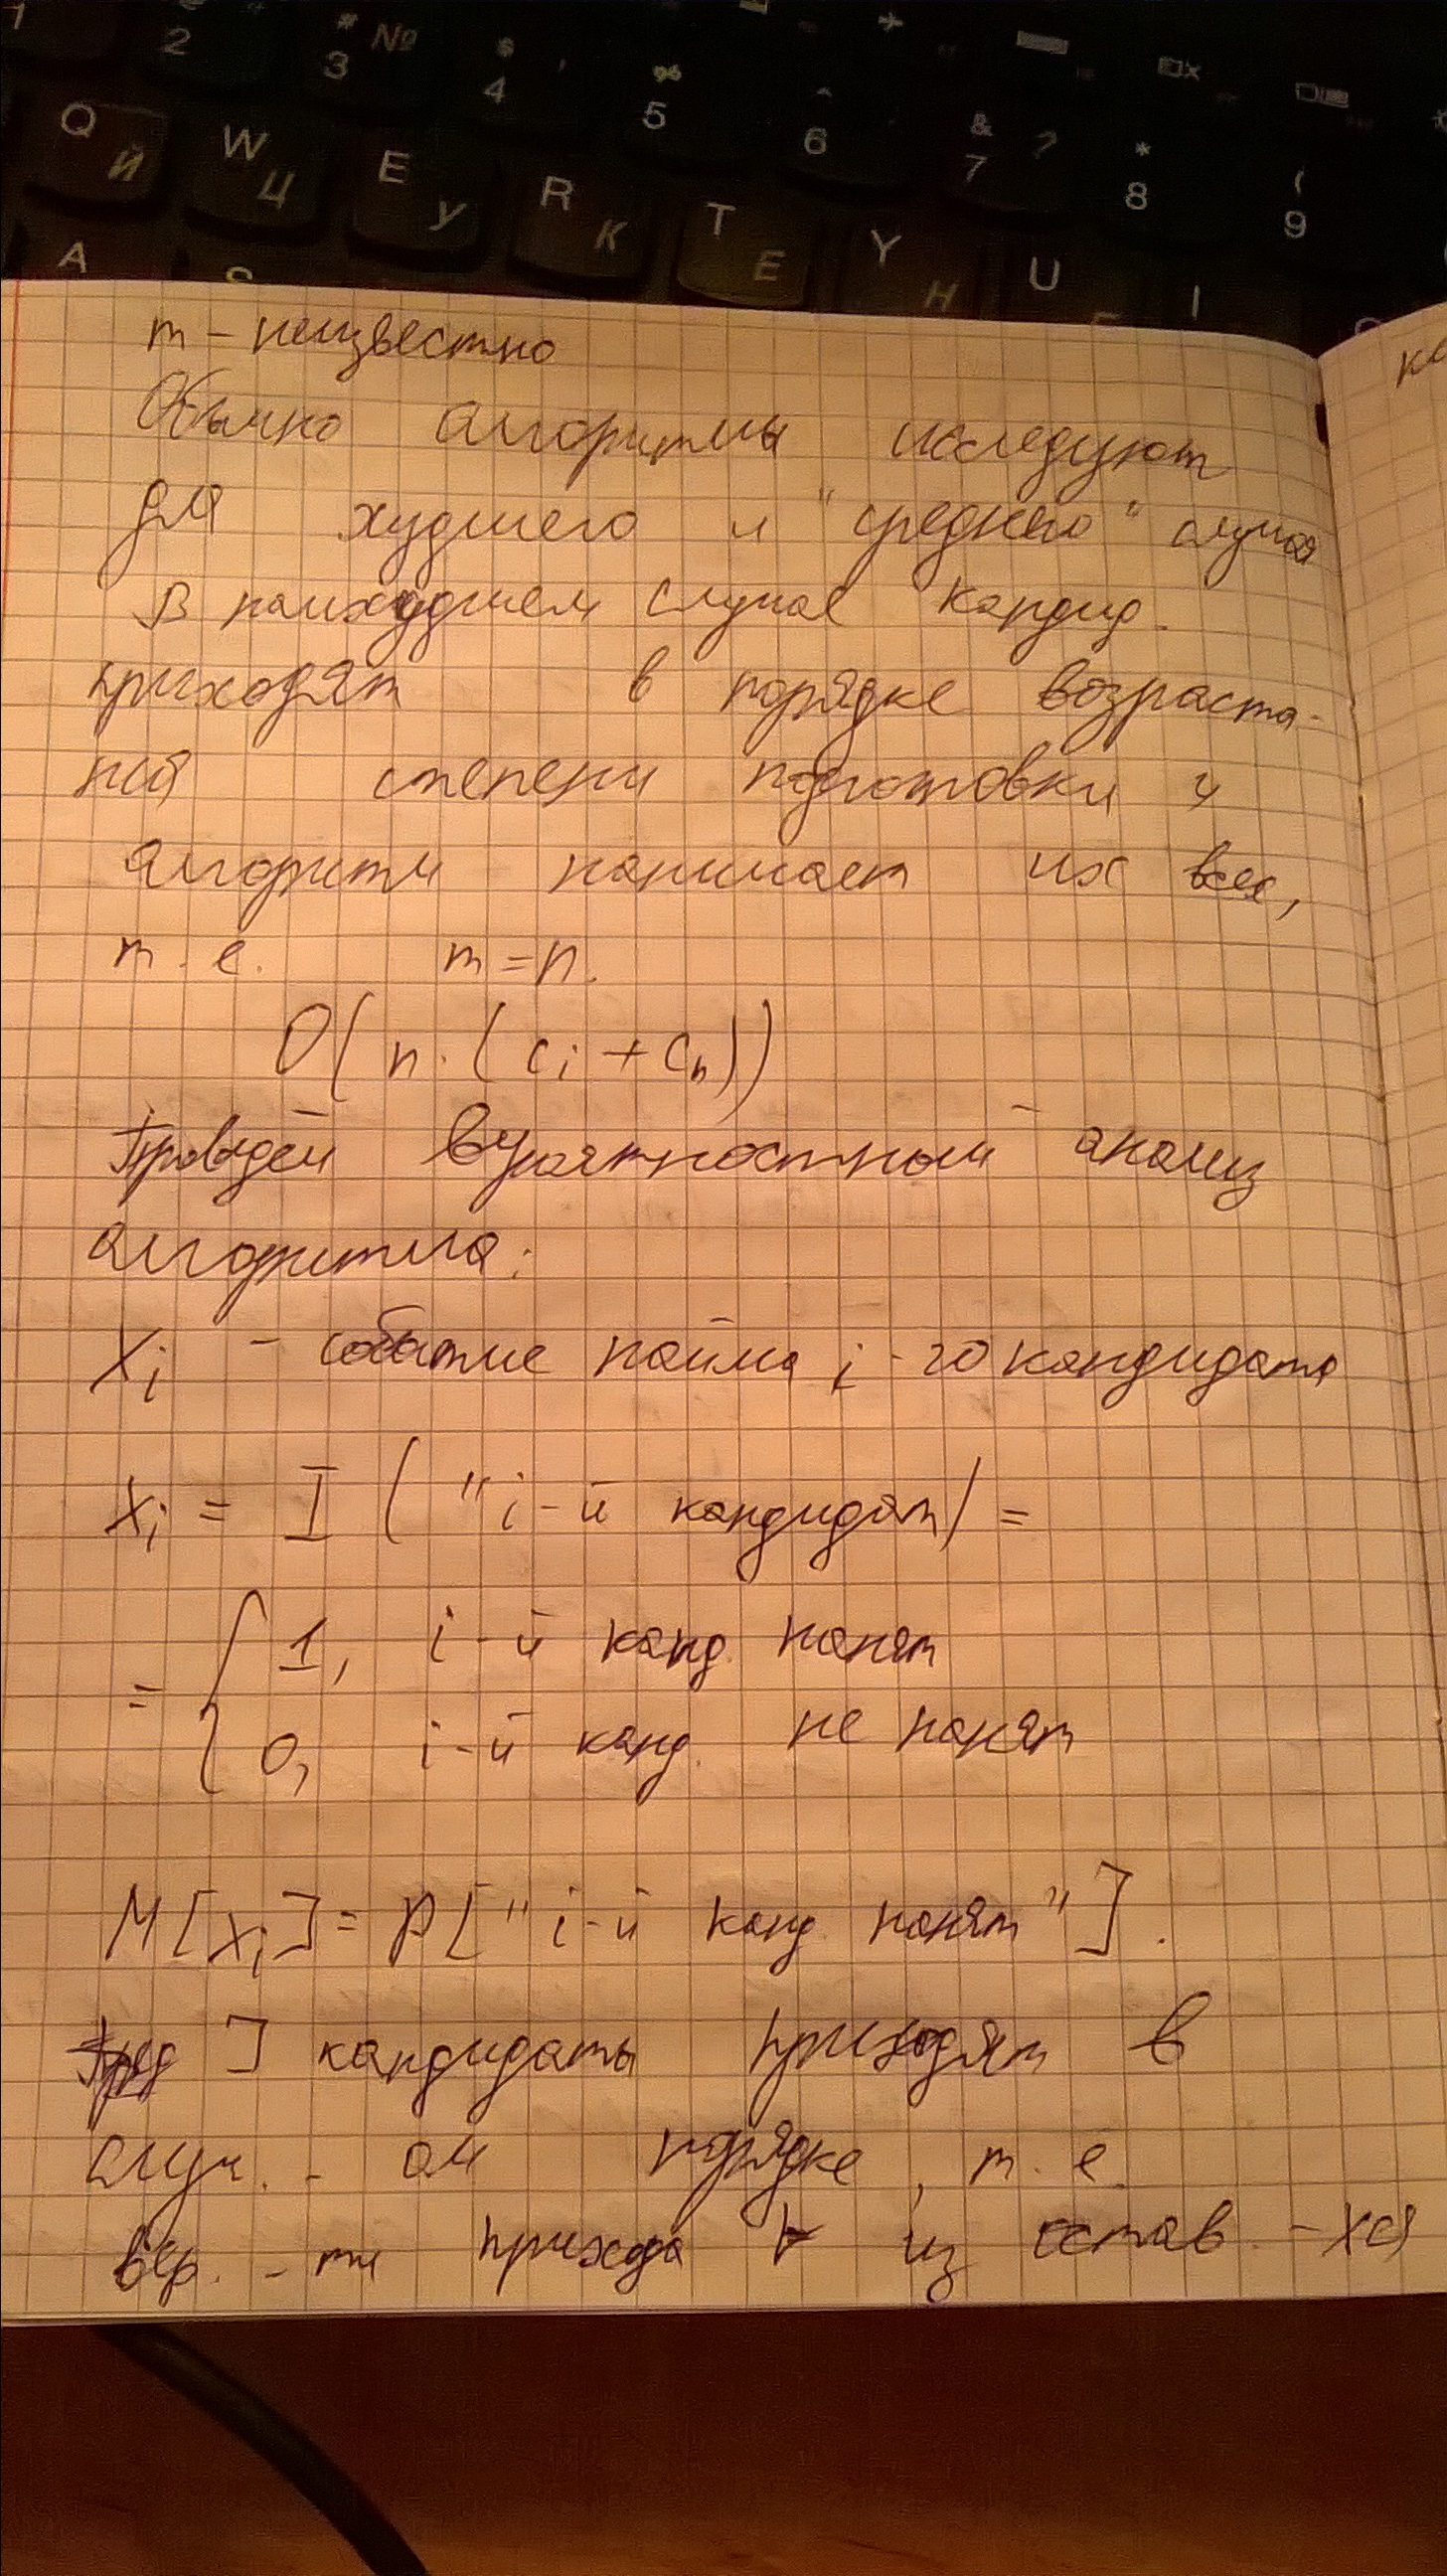 1 2 3 № 4 5 6 & 7 ? * 8 ( 9
Q Й W Ц E У R К T Е Y Н U I
A S
m - неизвестно
Обычно алгоритмы исследуют
для худшего и "среднего" случая
В наихудшем случае кандид.
приходят в порядке возраста-
ния степени подготовки и
алгоритм нанимает их всех,
т. е. m = n.
O(n·(ci + cn))
Проведём вероятностный анализ
алгоритма:
Xi - событие найма i-го кандидата
Xi = I ("i-й кандидат) =
= { 1, i-й канд. нанят
0, i-й канд. не нанят
M[Xi] = P["i-й канд. нанят"].
] кандидаты приходят в
случ. - ом порядке, т. е.
вер. - ти прихода ∀ из остав. - хся